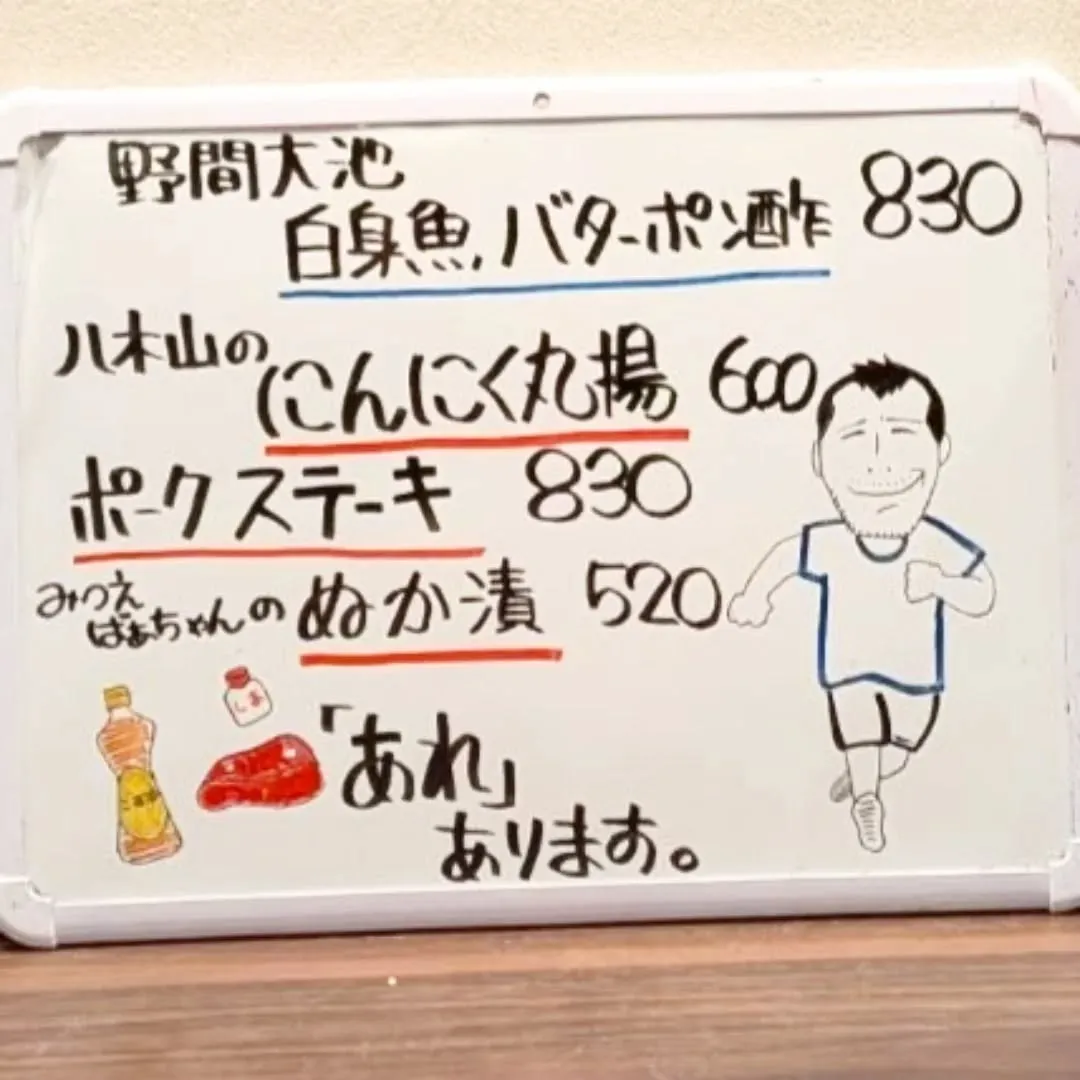 野間大池
白身魚バターポン酢 830
八木山の にんにく丸揚 600
ポークステーキ 830
みつえ
ばぁちゃんの ぬか漬 520
しお
「あれ」
あります。